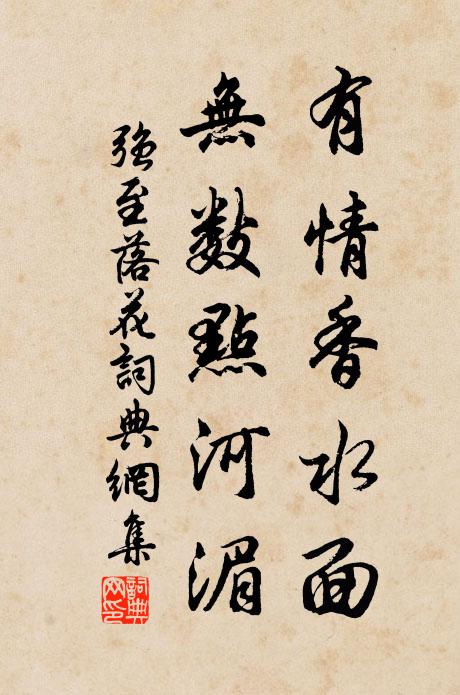 有情香水面
無數點河湄
強至落花詞典網集
詞典網印